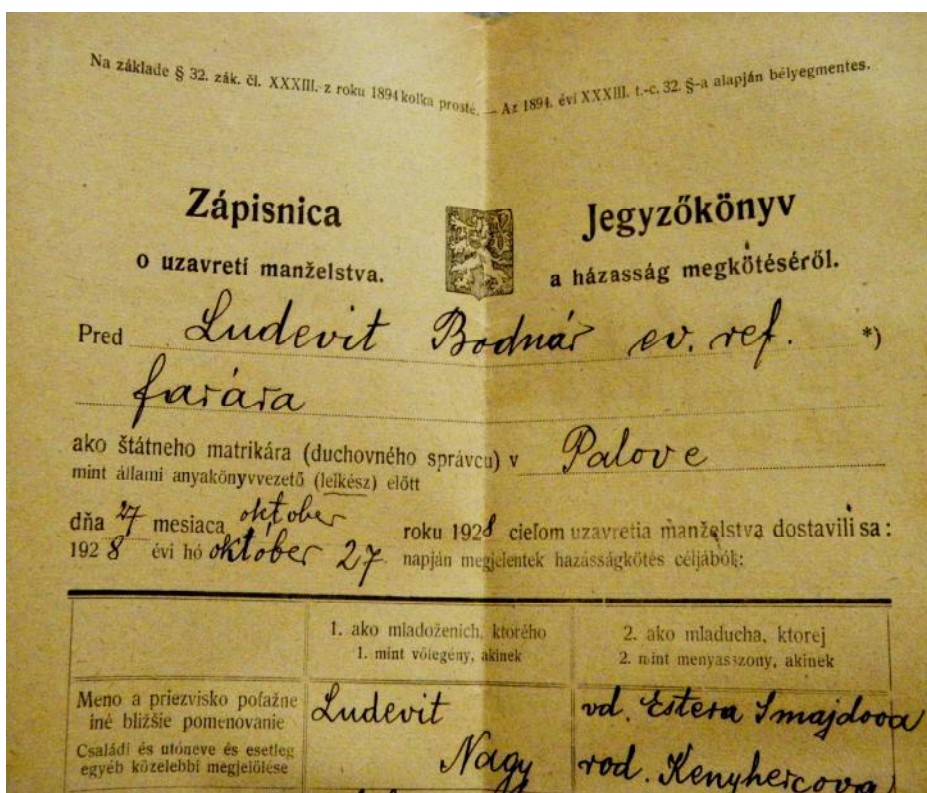 Na základe § 32. zák. čl. XXXIII. z roku 1894 kolka prosté. — Az 1894. évi XXXIII. t.-c. 32. §-a alapján bélyegmentes.
Zápisnica
o uzavretí manželstva.
Jegyzőkönyv
a házasság megkötéséről.
Pred Ludevit Bodnár ev. ref. *)
farára
ako štátneho matrikára (duchovného správcu) v Palove
mint állami anyakönyvvezető (lelkész) előtt
dňa 27 mesiaca október roku 1928 cieľom uzavretia manželstva dostavili sa:
1928 évi hó október 27. napján megjelentek hazásságkötés céljából:
1. ako mladoženích, ktorého
1. mint vőlegény, akinek
2. ako mladucha, ktorej
2. mint menyasszony, akinek
Meno a priezvisko poťažne
iné bližšie pomenovanie
Családi és utóneve és esetleg
egyéb közelebbi megjelölése
Ludevit
Nagy
vd. Estera Smajdova
rod. Kenyhercova